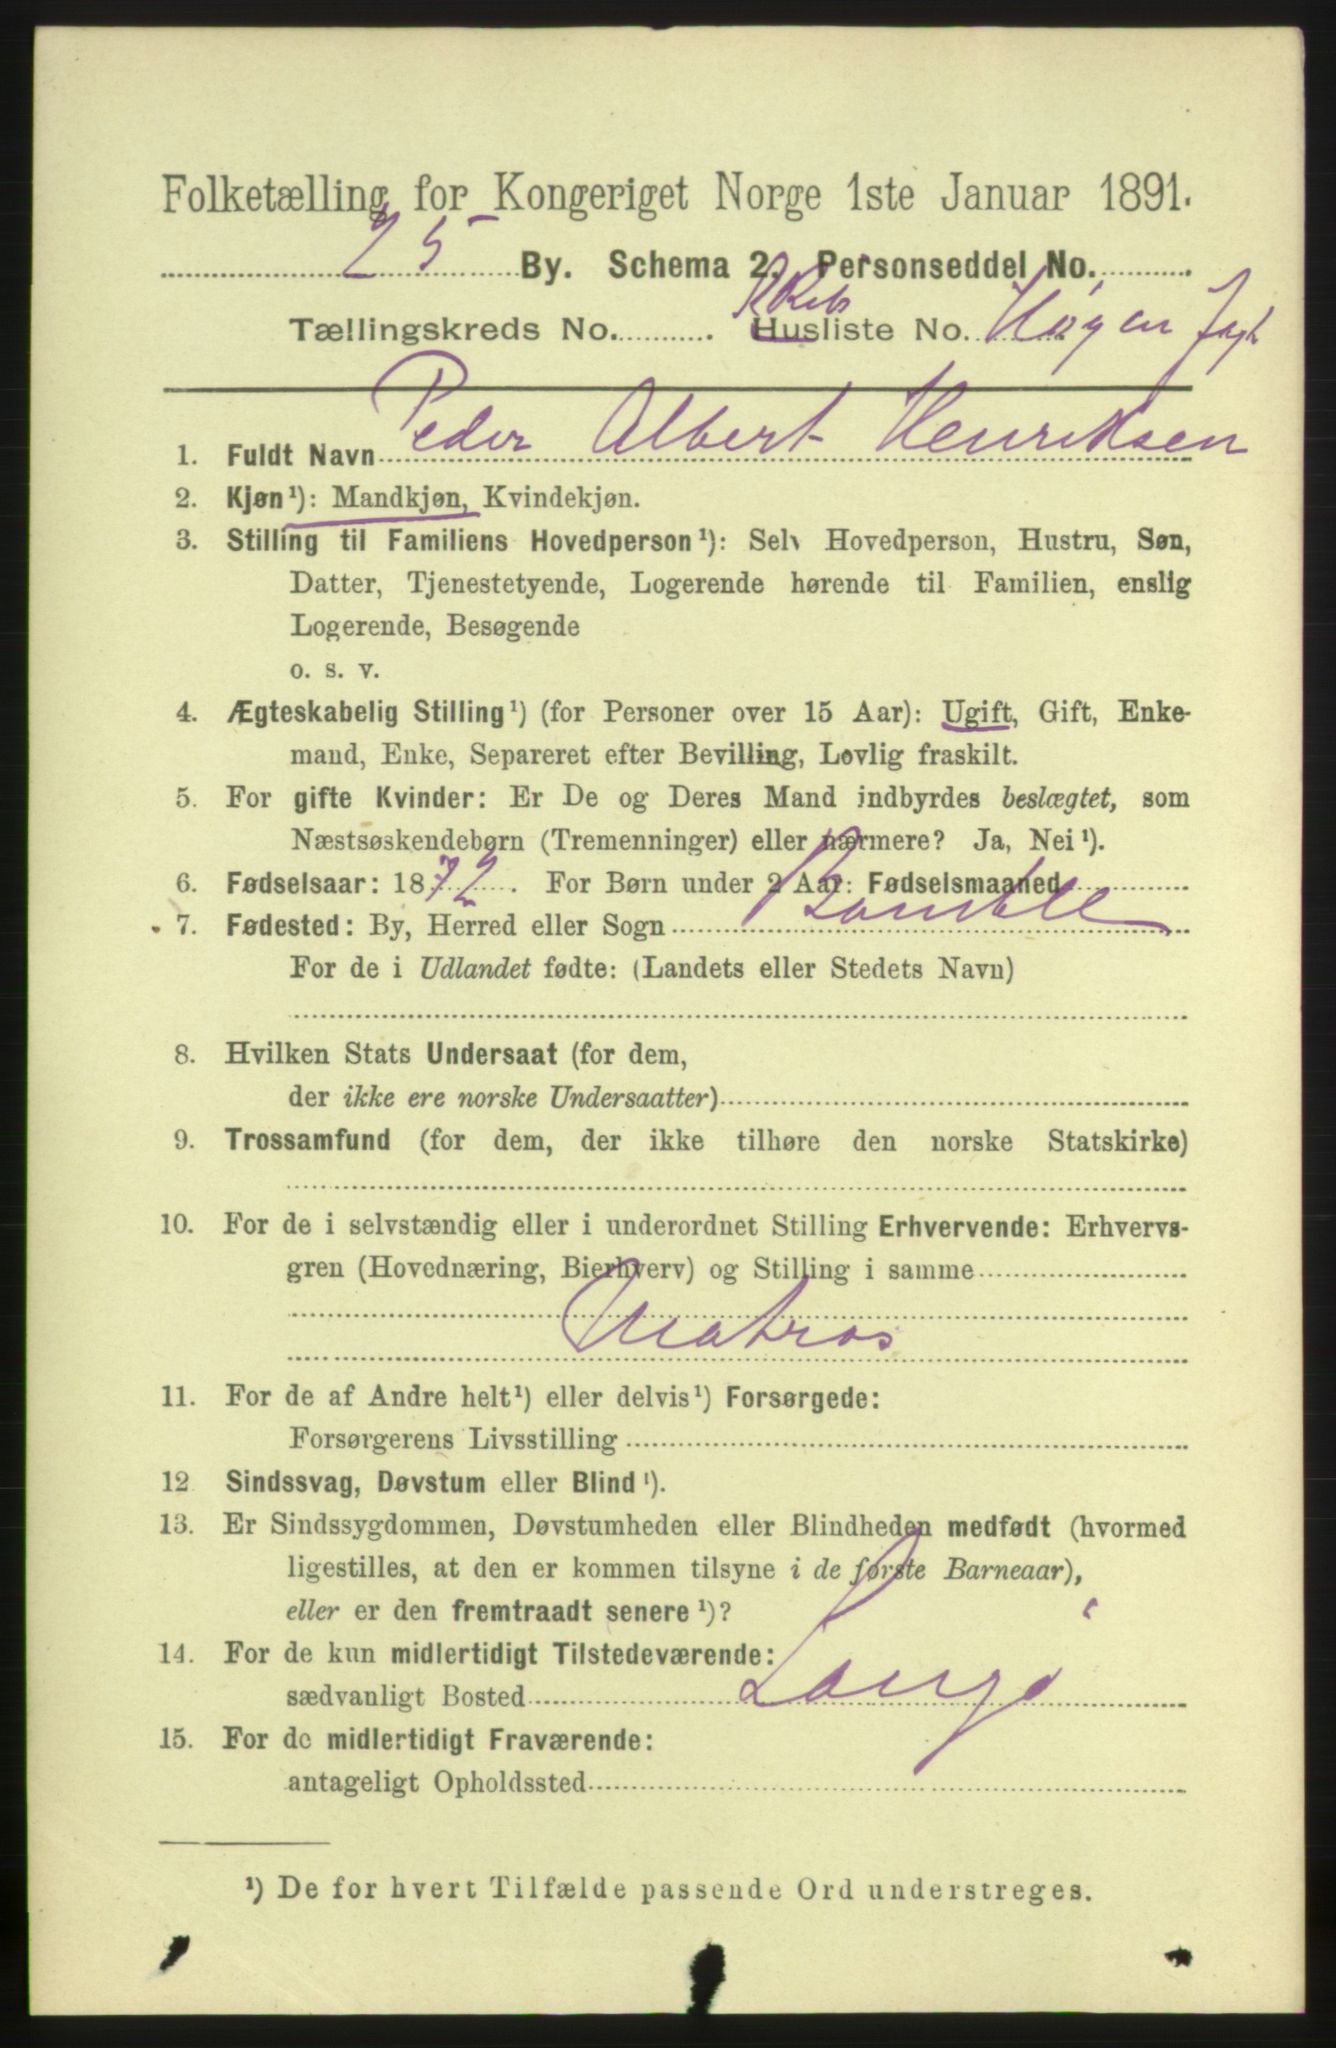 Folketælling for Kongeriget Norge 1ste Januar 1891.
25 By. Schema 2. Personseddel No.
Tællingskreds No. Husliste No. Jagt
1. Fuldt Navn Peder Albert Henriksen
2. Kjøn¹): Mandkjøn, Kvindekjøn.
3. Stilling til Familiens Hovedperson¹): Selv Hovedperson, Hustru, Søn,
Datter, Tjenestetyende, Logerende hørende til Familien, enslig
Logerende, Besøgende
o. s. v.
4. Ægteskabelig Stilling¹) (for Personer over 15 Aar): Ugift, Gift, Enke-
mand, Enke, Separeret efter Bevilling, Lovlig fraskilt.
5. For gifte Kvinder: Er De og Deres Mand indbyrdes beslægtet, som
Næstsøskendebørn (Tremenninger) eller nærmere? Ja, Nei¹).
6. Fødselsaar: 1872. For Børn under 2 Aar: Fødselsmaaned
7. Fødested: By, Herred eller Sogn Bamble
For de i Udlandet fødte: (Landets eller Stedets Navn)
8. Hvilken Stats Undersaat (for dem,
der ikke ere norske Undersaatter)
9. Trossamfund (for dem, der ikke tilhøre den norske Statskirke)
10. For de i selvstændig eller i underordnet Stilling Erhvervende: Erhvervs-
gren (Hovednæring, Bierhverv) og Stilling i samme
Matros
11. For de af Andre helt¹) eller delvis¹) Forsørgede:
Forsørgerens Livsstilling
12 Sindssvag, Døvstum eller Blind¹).
13. Er Sindssygdommen, Døvstumheden eller Blindheden medfødt (hvormed
ligestilles, at den er kommen tilsyne i de første Barneaar),
eller er den fremtraadt senere¹)?
14. For de kun midlertidigt Tilstedeværende:
sædvanligt Bosted Langö
15. For de midlertidigt Fraværende:
antageligt Opholdssted
¹) De for hvert Tilfælde passende Ord understreges.